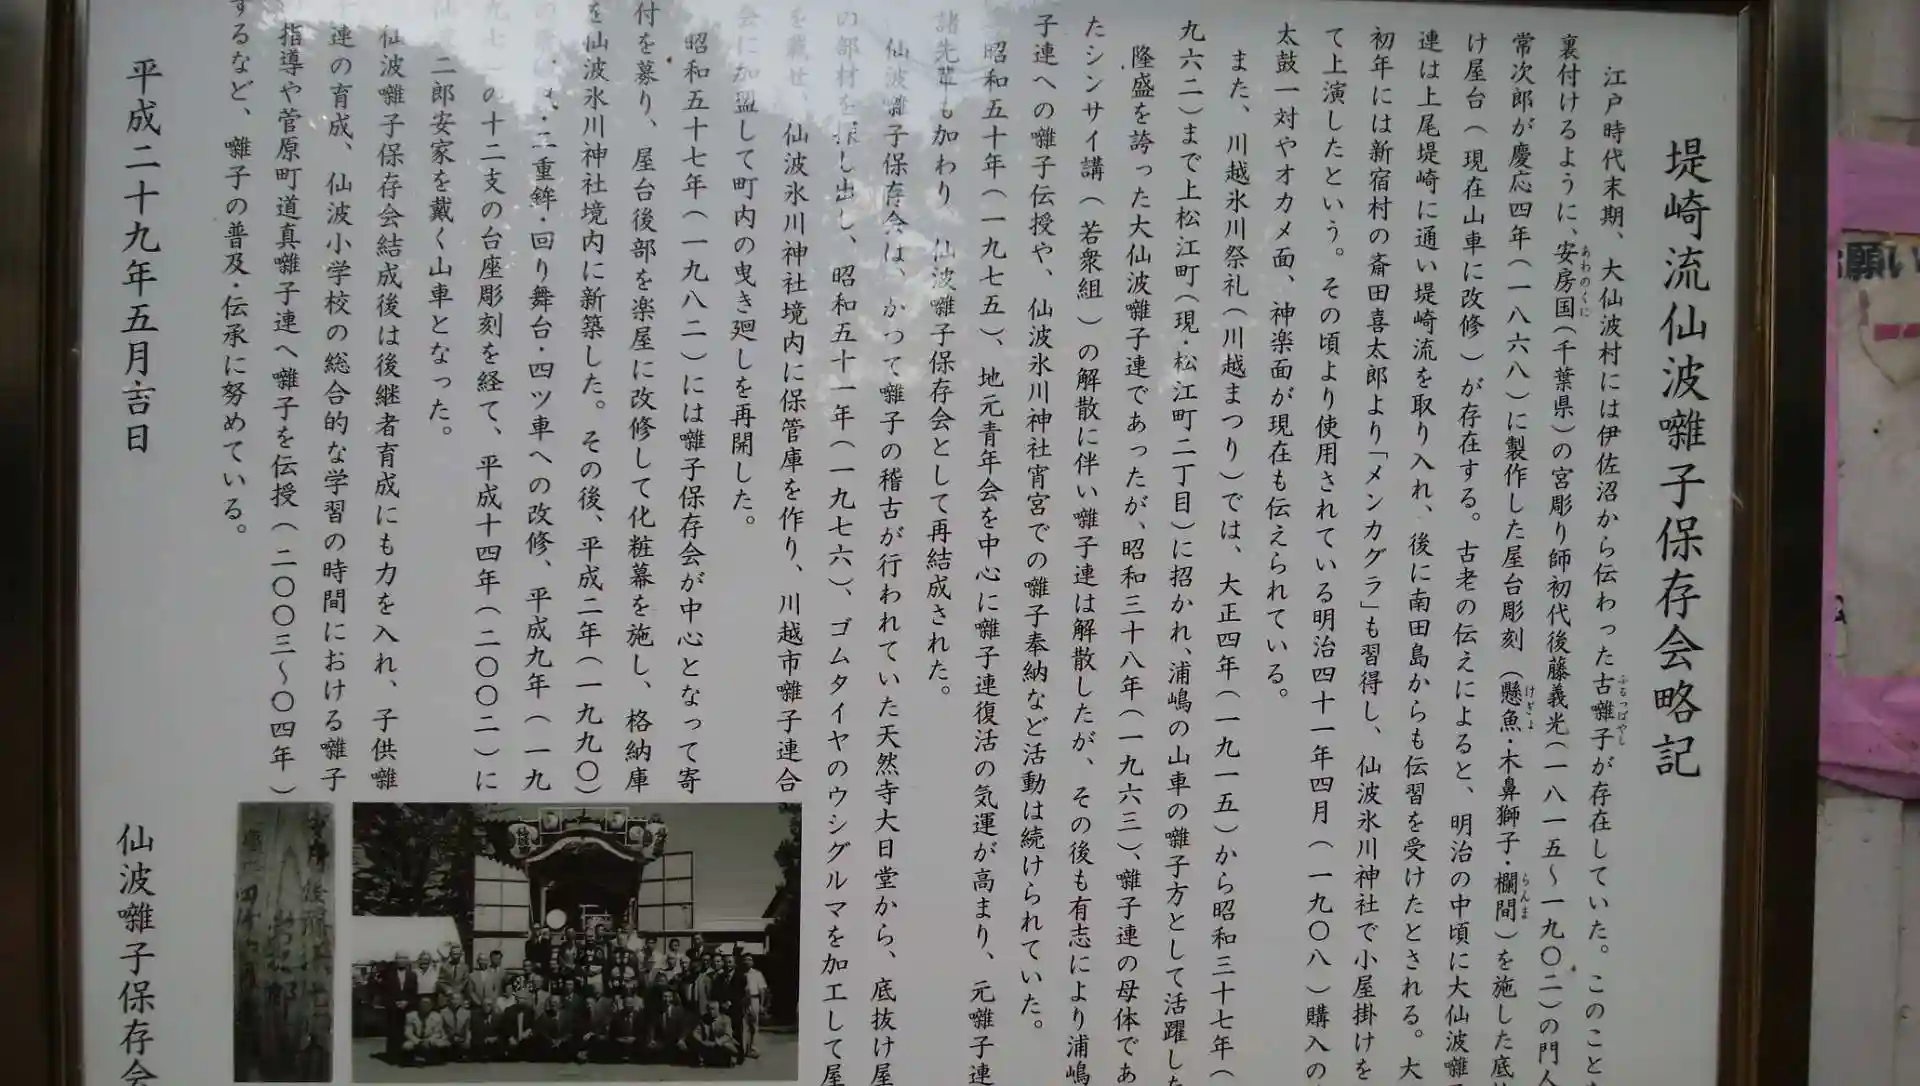 堤崎流仙波囃子保存会略記
江戸時代末期、大仙波村には伊佐沼から伝わった古囃子が存在していた。このこと
ふるっばやし
裏付けるように、安房国(千葉県)の宮彫り師初代後藤義光(一八一五〜一九〇二)の門人
あわのくに
常次郎が慶応四年(一八六八)に製作した屋台彫刻(懸魚・木鼻獅子・欄間)を施した底
けぎょ
らんま
け屋台(現在山車に改修)が存在する。古老の伝えによると、明治の中頃に大仙波囃
連は上尾堤崎に通い堤崎流を取り入れ、後に南田島からも伝習を受けたとされる。大
初年には新宿村の斎田喜太郎より「メンカグラ」も習得し、仙波氷川神社で小屋掛けを
て上演したという。その頃より使用されている明治四十一年四月(一九〇八)購入の
太鼓一対やオカメ面、神楽面が現在も伝えられている。
また、川越氷川祭礼(川越まつり)では、大正四年(一九一五)から昭和三十七年(
九六二)まで上松江町(現・松江町二丁目)に招かれ、浦嶋の山車の囃子方として活躍した
隆盛を誇った大仙波囃子連であったが、昭和三十八年(一九六三)、囃子連の母体であ
たシンサイ講(若衆組)の解散に伴い囃子連は解散したが、その後も有志により浦嶋
子連への囃子伝授や、仙波氷川神社宵宮での囃子奉納など活動は続けられていた。
昭和五十年(一九七五)、地元青年会を中心に囃子連復活の気運が高まり、元囃子連
諸先輩も加わり 仙波囃子保存会として再結成された。
仙波囃子保存会は、かつて囃子の稽古が行われていた天然寺大日堂から、底抜け屋
の部材を探し出し、昭和五十一年(一九七六)、ゴムタイヤのウシグルマを加工して屋
を載せ、仙波氷川神社境内に保管庫を作り、川越市囃子連合
会に加盟して町内の曳き廻しを再開した。
昭和五十七年(一九八二)には囃子保存会が中心となって寄
付を募り、屋台後部を楽屋に改修して化粧幕を施し、格納庫
を仙波氷川神社境内に新築した。その後、平成二年(一九九〇)
二重鉾・回り舞台・四ツ車への改修、平成九年(一九
九七)の十二支の台座彫刻を経て、平成十四年(二〇〇二)に
二郎安家を戴く山車となった。
仙波囃子保存会結成後は後継者育成にも力を入れ、子供囃
連の育成、仙波小学校の総合的な学習の時間における囃子
指導や菅原町道真囃子連へ囃子を伝授(二〇〇三〜〇四年)
するなど、囃子の普及・伝承に努めている。
平成二十九年五月吉日
仙波囃子保存会
お願い